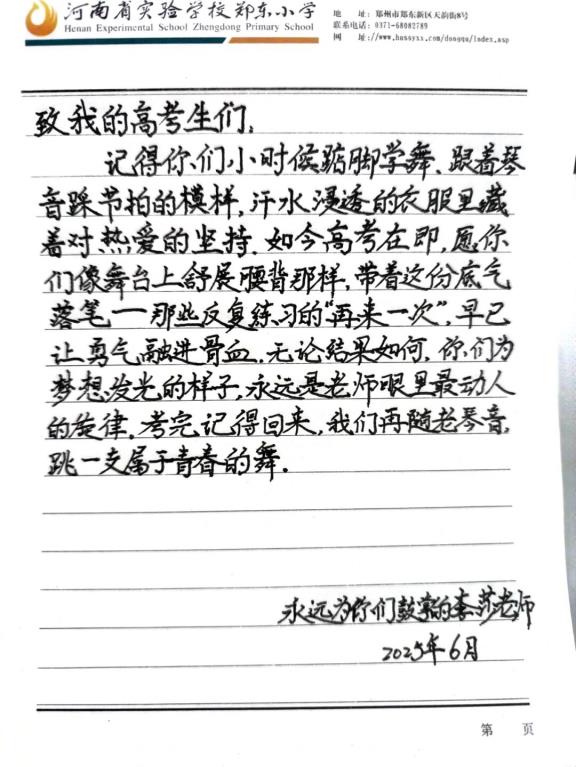 河南省实验学校郑东小学
Henan Experimental School Zhengdong Primary School
地 址：郑州市郑东新区天韵街8号
联系电话：0371-68082789
网 址：//www.hnssyxx.com/dongqu/index.asp
致我的高考生们：
记得你们小时候踮脚学舞，跟着琴
音踩节拍的模样，汗水浸透的衣服里藏
着对热爱的坚持。如今高考在即，愿你
们像舞台上舒展腰背那样，带着这份底气
落笔——那些反复练习的“再来一次”，早已
让勇气融进骨血。无论结果如何，你们为
梦想发光的样子，永远是老师眼里最动人
的旋律。考完记得回来，我们再随老琴音，
跳一支属于青春的舞。
永远为你们鼓掌的李莎老师
2025年6月
第 页